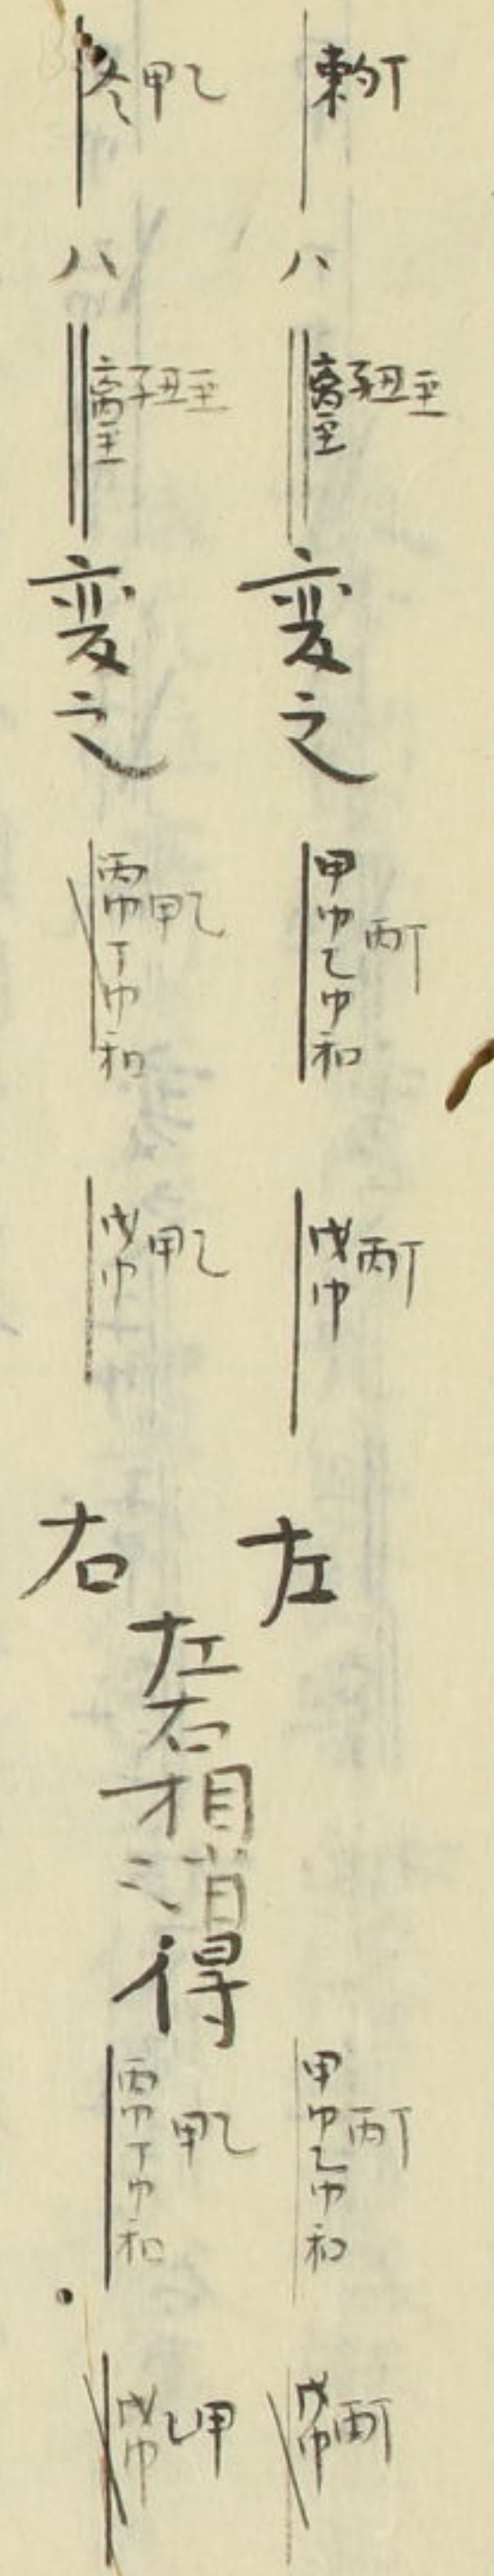 東丙丁
八
离巠子丑巠
変之
甲巾乙巾和丙丁
戊巾丙丁
左
甲乙
八
离巠子丑巠
変之
丙巾丁巾和甲乙
戊巾甲乙
右
左右相消得
甲巾乙巾和丙丁
戊巾丙丁
丙巾丁巾和甲乙
戊巾乙甲